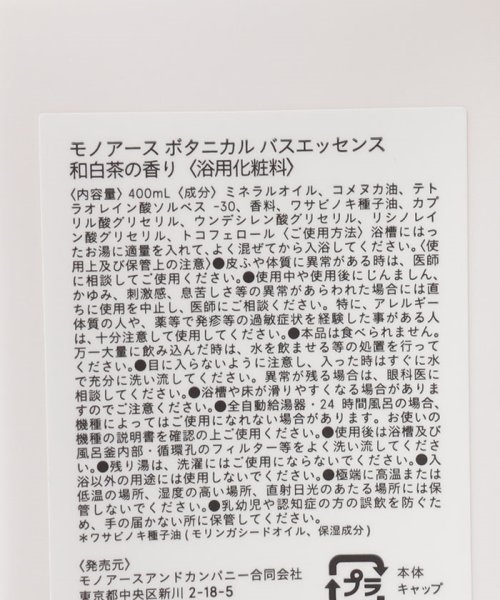 モノアース ボタニカル バスエッセンス
和白茶の香り〈浴用化粧料〉
〈内容量〉400mL〈成分〉ミネラルオイル、コメヌカ油、テト
ラオレイン酸ソルベス -30、香料、ワサビノキ種子油、カプ
リル酸グリセリル、ウンデシレン酸グリセリル、リシノレイ
ン酸グリセリル、トコフェロール〈ご使用方法〉浴槽には
ったお湯に適量を入れて、よく混ぜてから入浴してください。〈使
用上及び保管上の注意〉●皮ふや体質に異常がある時は、医師
に相談してご使用ください。●使用中や使用後にじんましん、
かゆみ、刺激感、息苦しさ等の異常があらわれた場合には直
ちに使用を中止し、医師にご相談ください。特に、アレルギー
体質の人や、薬等で発疹等の過敏症状を経験した事がある人
は、十分注意して使用してください。●本品は食べられません。
万一大量に飲み込んだ時は、水を飲ませる等の処置を行って
ください。●目に入らないように注意し、入った時はすぐに水
で充分に洗い流してください。異常が残る場合は、眼科医に
相談してください。●浴槽や床が滑りやすくなる場合がありま
すのでご注意ください。●全自動給湯器・24 時間風呂の場合、
機種によってはご使用になれない場合があります。お使いの
機種の説明書を確認の上ご使用ください。●使用後は浴槽及び
風呂釜内部・循環孔のフィルター等をよく洗い流してくださ
い。●残り湯は、洗濯にはご使用にならないでください。●入
浴以外の用途には使用しないでください。●極端に高温または
低温の場所、湿度の高い場所、直射日光のあたる場所には保
管しないでください。●乳幼児や認知症の方の誤飲を防ぐた
め、手の届かない所に保管してください。
*ワサビノキ種子油(モリンガシードオイル、保湿成分)
〈発売元〉
モノアースアンドカンパニー合同会社
東京都中央区新川 2-18-5
プラ
本体
キャップ